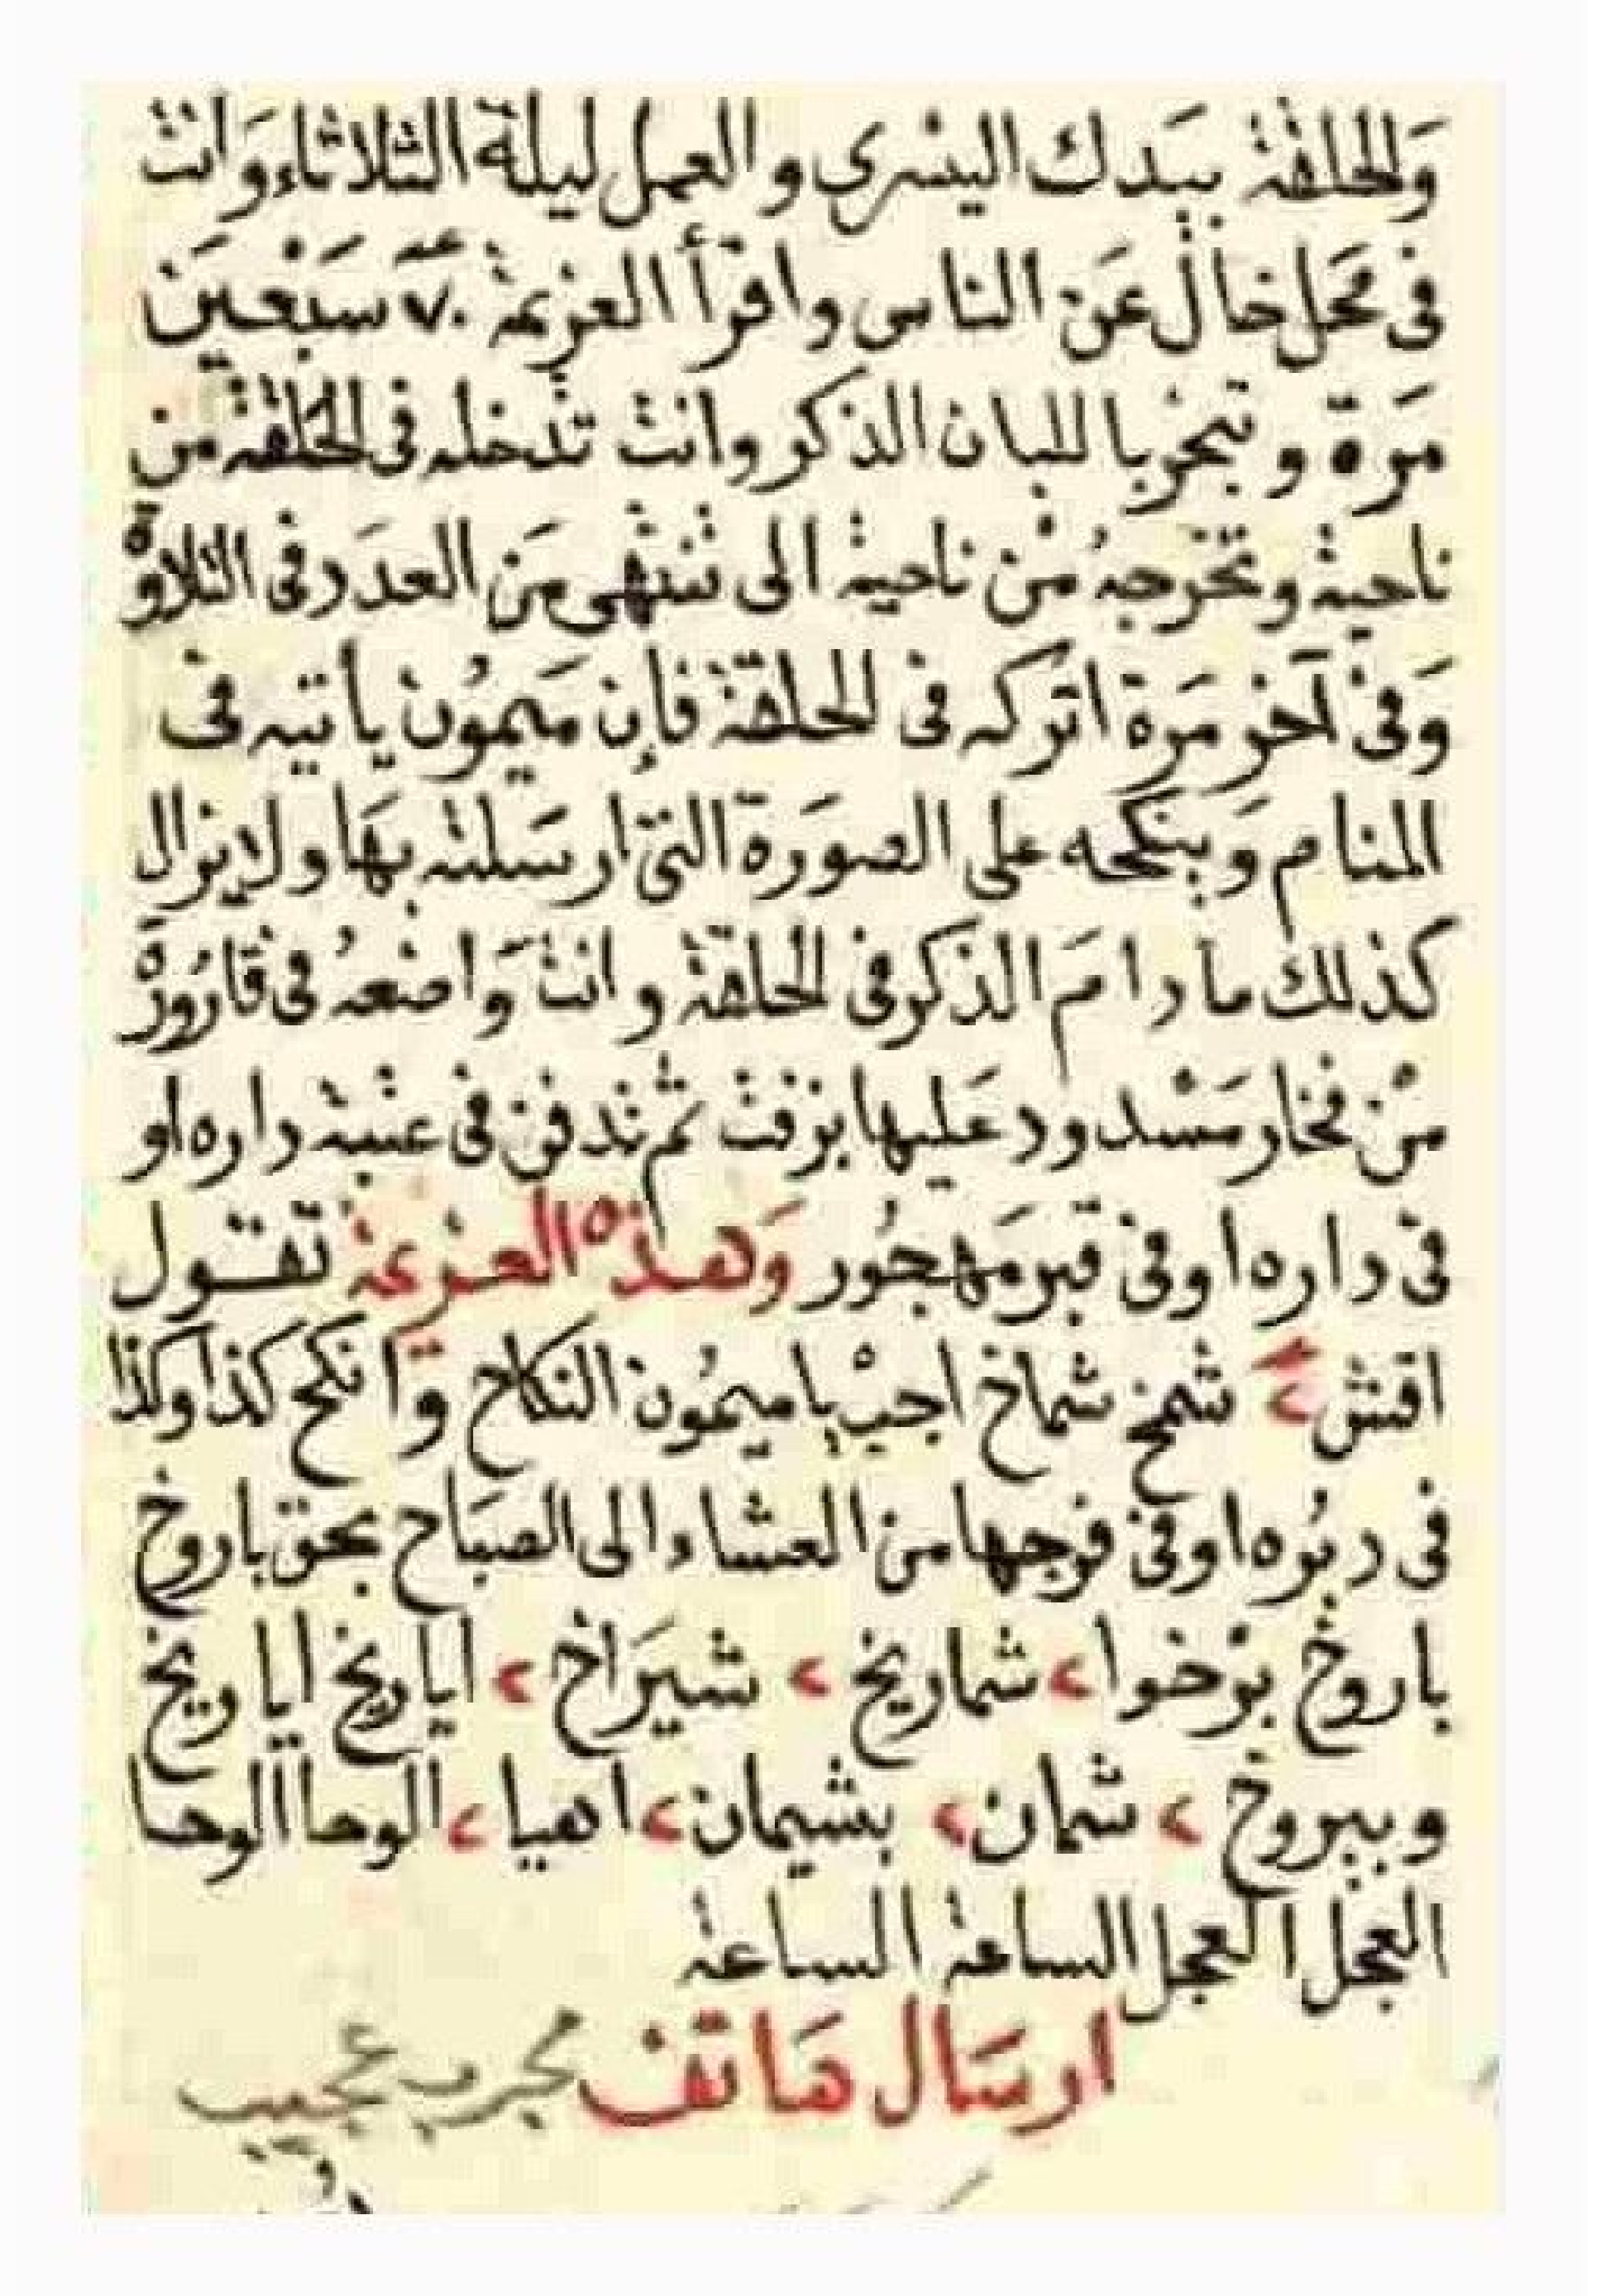 وَالحلقة بيَدك اليسْرى والعمل ليلة الثلاثاء وَانت
فى محَل خال عَن الناس واقرأ العزيمة ٧٠ سَبْعين
مَرة وتبخر باللبان الذكر وانت تدخله فى الحلقة من
ناحية وتخرجهُ من ناحية الى تنتهى مَن العدَد فى التلاوة
وَفى آخر مَرة اتركه فى الحلقة فإن مَيمُون يأتيه فى
المنام وَينكحه على الصوَرة التى ارسَلته بهَا ولا يزال
كذلك ما دامَ الذكر فى الحلقة وانت وَاضعهُ فى قارُورة
منْ فخار مَسْدود عَليها بزفت ثم تدفن فى عتبة داره او
فى داره اوفى قبر مَهجُور وَهذه العزيمة تقول
اقش ٢ شمخ شماخ اجبْ يا ميمُون النكاح وانكح كذا وكذا
فى دبُره اوفى فرجها من العشاء الى الصبَاح بحق باروخ
باروخ برْخوا ٢ شماريخ ٢ شيرَاخ ٢ اياريخ اياريخ
وبيروخ ٢ شمان ٢ بشيمان ٢ اهيا ٢ الوحا الوحا
العجل العجل الساعة الساعة
ارسَال هَاتف مجرب عجيب